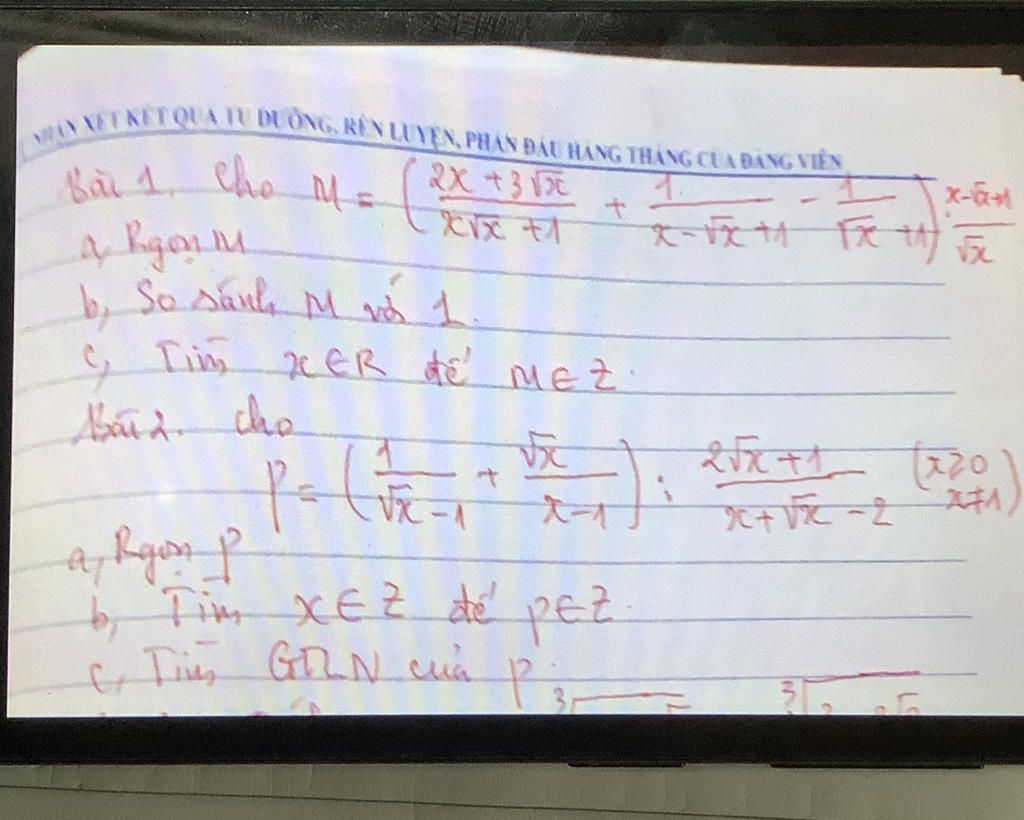 NHẬN XÉT KẾT QUẢ TU DƯỠNG, RÈN LUYỆN, PHẤN ĐẤU HÀNG THÁNG CỦA ĐẢNG VIÊN
Bài 1. Cho M = ( (2x + 3√x)/(x√x + 1) + 1/(x - √x + 1) - 1/(√x + 1) ) . (x - √x + 1)/√x
a, Rgọn M
b, So sánh M với 1.
c, Tìm x ∈ R để M ∈ Z.
Bài 2. Cho
P = ( 1/(√x - 1) + √x/(x - 1) ) : (2√x + 1)/(x + √x - 2) (x ≥ 0 x ≠ 1)
a, Rgọn P
b, Tìm x ∈ Z để P ∈ Z.
c, Tìm GTLN của P.